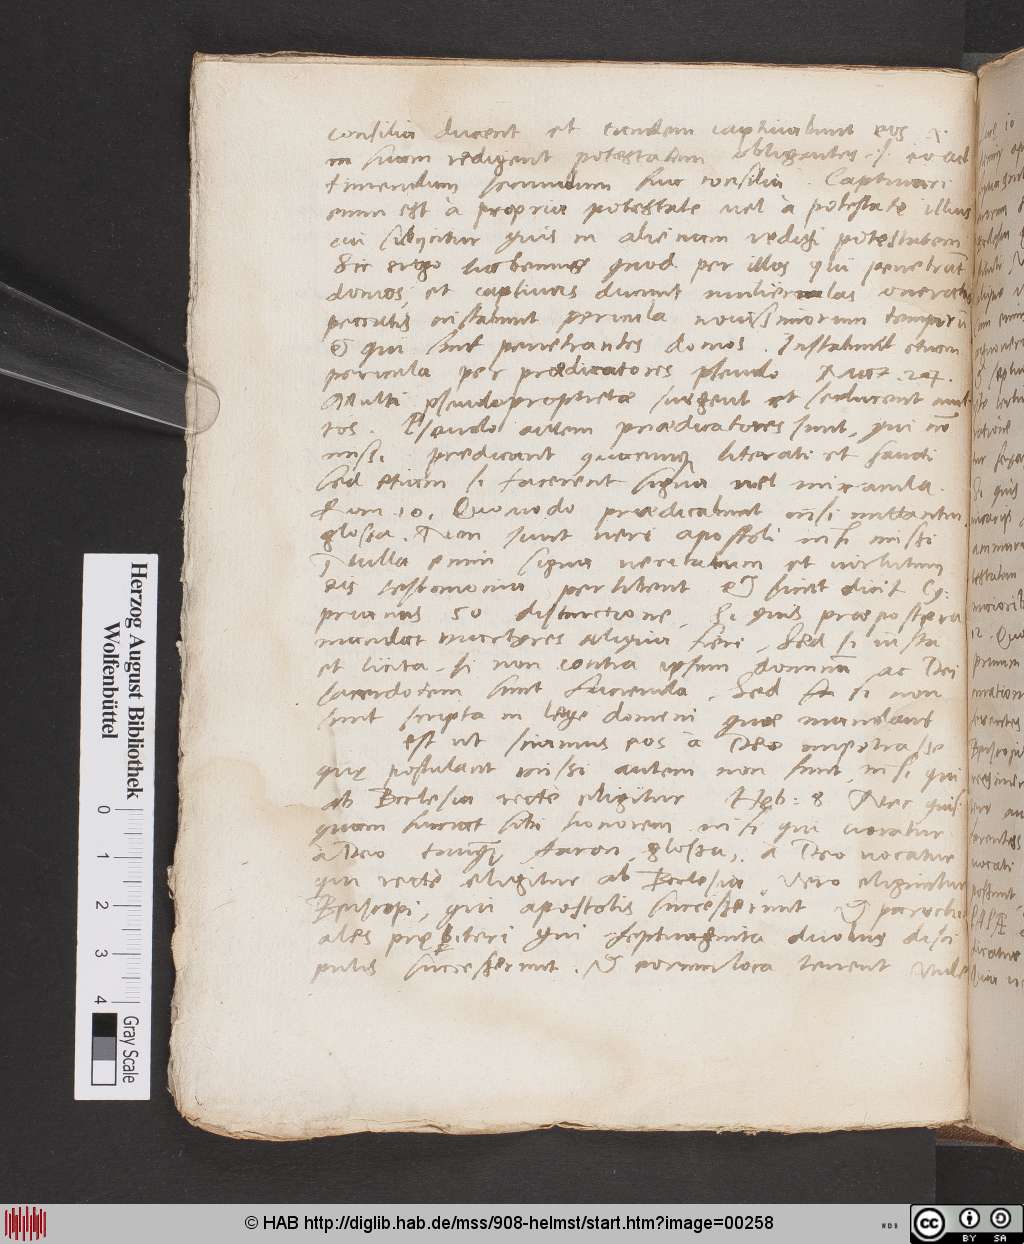 consilia ducent et tandem captivabunt eos
in suam redigent potestatem obligantes .i. eo ad
timendum secundum sua consilia. Captivari
enim est à propria potestate vel à potestate illius
cui subijcitur quis in alienam redigi potestatem
Sic ergo habemus quod per illos qui penetrāt
domos, et captivas ducunt mulierculas oneratas
peccatis instabunt pericula novissimorum temporū
et qui sint penetrantes domos. Instabunt etiam
pericula per prædicatores pseudo Mat. 24.
Multi pseudoprophetæ surgent et seducent mul
tos. Pseudo autem prædicatores sunt, qui nō
missi prædicant quamuis literati et sancti
sed etiam si facerent signa vel miracula.
Rom. 10. Quomodo prædicabunt nisi mittantur
glossa. Non sunt veri apostoli nisi missi
Nulla enim signa veritatum et virtutum
eis testimonia perhibent et sicut dicit Cy:
prianus 50 distinctione. Si quis præpostera
mandat fieri. Sed si iusta
et licita, si non contra ipsum dominū ac Dei
sacerdotem sint facienda. Sed si non
sint scripta in lege domini quæ mandant
est ut sciamus eos à Deo impetrasse
quę postulant missi autem non sunt, nisi qui
ab Ecclesia rectè eligitur Heb: 8 Nec quis
quam sumat sibi honorem nisi qui vocatur
à Deo tanquā Aaron, glossa, à Deo vocatur
qui rectè eligitur ab Ecclesia, Vero eliguntur
Episcopi, qui apostolis successerunt et parochi
ales pręsbiteri qui septuaginta duobus disci
pulis successerunt. et eorum loca tenent Unde
Herzog August Bibliothek
Wolfenbüttel
0 1 2 3 4
Gray Scale
© HAB http://diglib.hab.de/mss/908-helmst/start.htm?image=00258
WDB
cc BY SA